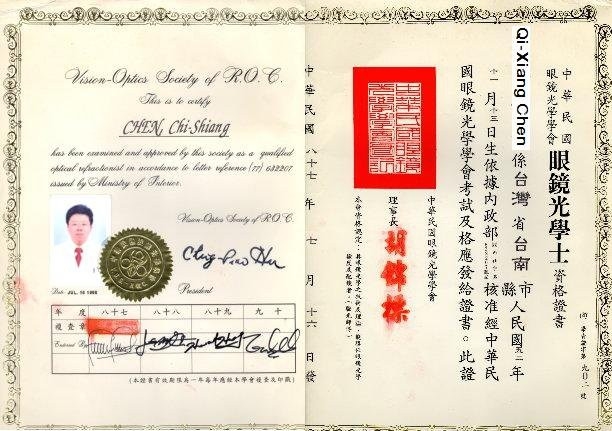 Vision-Optics Society of R.O.C.
This is to certify
CHEN, Chi-Shiang
has been examined and approved by this society as a qualified
optical refractionist in accordance to letter reference (77) 632207
issued by Ministry of Interior.
Vision-Optics Society of R.O.C.
President
Date JUL. 16 1998
年度 八十七 八十八 八十九 九十
複查章
Endorsed By
(本證書有效期限為一年每年應經本學會複查及印戳)
中華民國 八十七 年 七 月 十六 日發
中華民國
眼鏡光學學會
眼鏡光學士
資格證書
Qi-Xiang Chen
係台灣省台南
市
縣
人民國
年
十一月
日生依據內政部
核准經中華民
國眼鏡光學學會考試及格應發給證書。此證
中華民國眼鏡光學學會
理事長
胡錦標